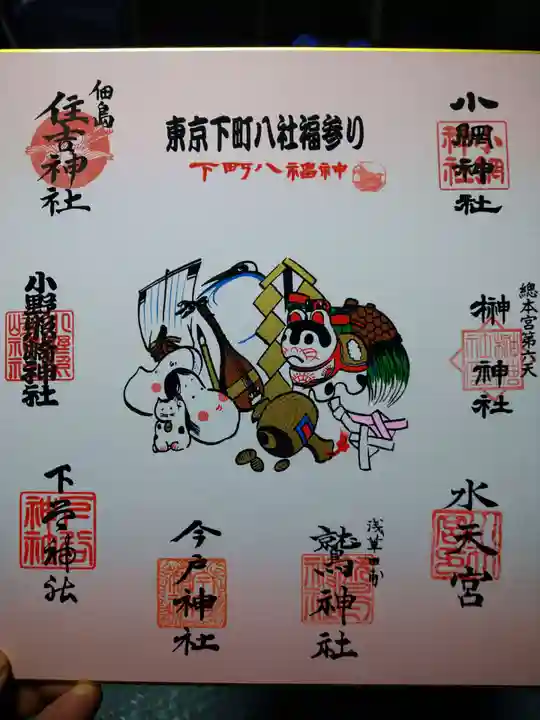 東京下町八社福参り
下町八福神
小網神社
總本宮第六天
榊神社
水天宮
浅草田甫
鷲神社
今戸神社
下谷神社
小野照崎神社
佃島
住吉神社